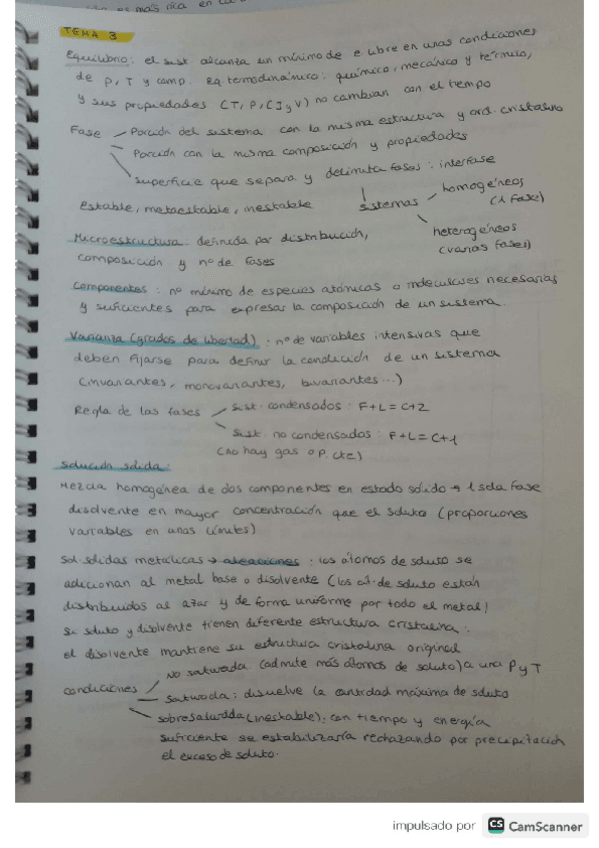 es más rica en
TEMA 3
Equilibrio: el sist alcanza un mínimo de e libre en unas condiciones
de P, T y comp. Eq termodinámico: químico, mecánico y térmico,
y sus propiedades (T, P, C, I y V) no cambian con el tiempo
Fase Porción del sistema con la misma estructura y ord. cristalino
Porción con la misma composición y propiedades
superficie que separa y delimita fases: interfase
estable, metaestable, inestable
sistemas homogéneos
(1 fase)
heterogéneos
(varias fases)
Microestructura: definida por distribución,
composición y nº de fases
Componentes: nº mínimo de especies atómicas o moleculares necesarias
y suficientes para expresar la composición de un sistema.
Varianza (grados de libertad): nº de variables intensivas que
deben fijarse para definir la condición de un sistema
(invariantes, monovariantes, bivariantes...)
Regla de las fases sist. condensados: F+L=C+2
sist. no condensados: F+L=C+1
(no hay gas o p. cte)
Solución sólida:
Mezcla homogénea de dos componentes en estado sólido → 1 sola fase
disolvente en mayor concentración que el soluto (proporciones
variables en unos límites)
Sol. sólidas metálicas → aleaciones: los átomos de soluto se
adicionan al metal base o disolvente (los at. de soluto están
distribuidos al azar y de forma uniforme por todo el metal)
Si soluto y disolvente tienen diferente estructura cristalina:
el disolvente mantiene su estructura cristalina original
condiciones No saturada (admite más átomos de soluto) a una P y T
saturada: disuelve la cantidad máxima de soluto
sobresaturada (inestable): con tiempo y energía
suficiente se estabilizaría rechazando por precipitación
el exceso de soluto.
impulsado por CS CamScanner